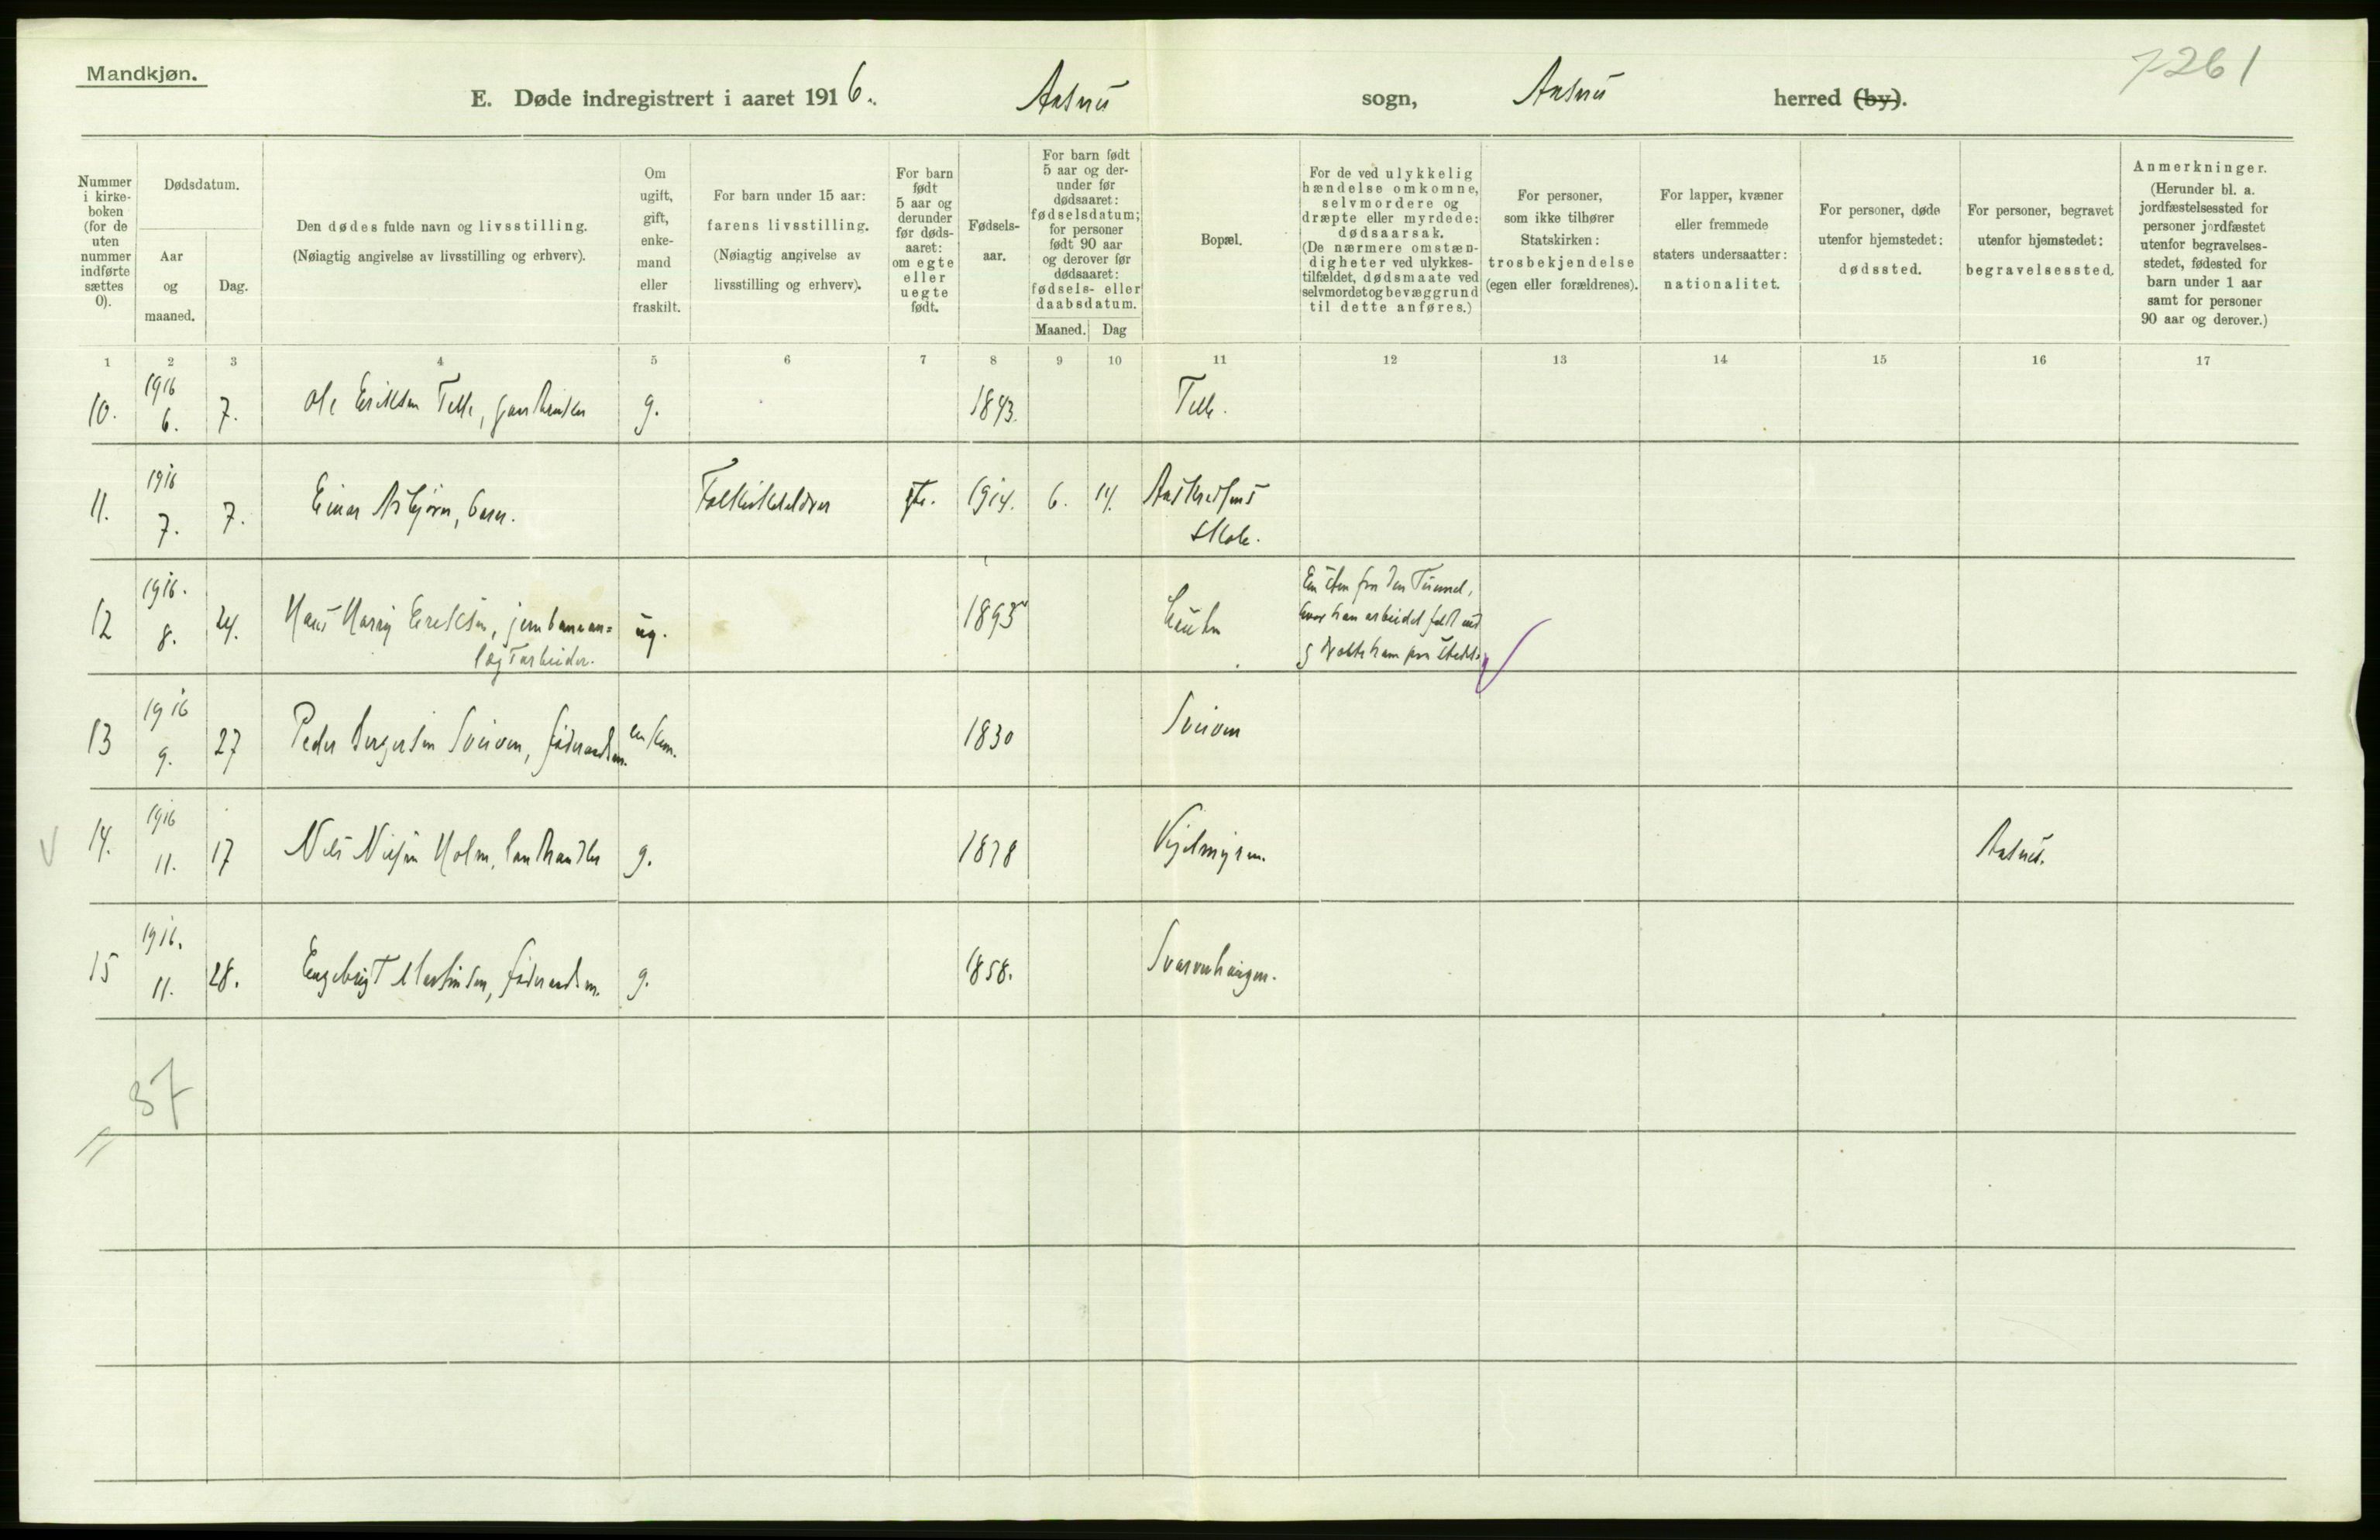 Mandkjøn.
7261
E. Døde indregistrert i aaret 1916. Aasnes sogn, Aasnes herred (by).
Nummer i kirke-boken (for de uten nummer indførte sættes 0).
Dødsdatum.
Aar og maaned.
Dag.
Den dødes fulde navn og livsstilling.
(Nøiagtig angivelse av livsstilling og erhverv).
Om ugift, gift, enke-mand eller fraskilt.
For barn under 15 aar:
farens livsstilling.
(Nøiagtig angivelse av livsstilling og erhverv).
For barn født 5 aar og derunder før døds-aaret: om egte eller uegte født.
Fødsels-aar.
For barn født 5 aar og der-under før dødsaaret: fødselsdatum; for personer født 90 aar og derover før dødsaaret: fødsels- eller daabsdatum.
Maaned. Dag
Bopæl.
For de ved ulykkelig hændelse omkomne, selvmordere og dræpte eller myrdede: dødsaarsak.
(De nærmere omstæn-digheter ved ulykkes-tilfældet, dødsmaate ved selvmordet og bevæggrund til dette anføres.)
For personer, som ikke tilhører Statskirken: trosbekjendelse (egen eller forældrenes).
For lapper, kvæner eller fremmede staters undersaatter: nationalitet.
For personer, døde utenfor hjemstedet: dødssted.
For personer, begravet utenfor hjemstedet: begravelsessted.
Anmerkninger.
(Herunder bl. a. jordfæstelsessted for personer jordfæstet utenfor begravelses-stedet, fødested for barn under 1 aar samt for personer 90 aar og derover.)
1 2 3 4 5 6 7 8 9 10 11 12 13 14 15 16 17
10. 1916 6. 7. Ole Eriksen Telle, gaardbruker g. 1843. Telle.
11. 1916 7. 7. Einar Asbjørn, barn. 1914. 6. 14.
Skole.
12 1916. 8. 24. Hans Harry Eriksen, jernbanean=
lægsarbeider. ug. 1895
En sten fra den Tunnel,
hvor han arbeidet faldt ned
g dræbte ham paa stedet.
13 1916 9. 27 Peder Bergersen Sveiven, føderaadsm. enkem. 1830 Sveiven
14. 1916 11. 17 Nils Nilsen Holm, landhandler g. 1878 Aasnes.
15 1916. 11. 28. Engebrigt Martinsen, føderaadsm. g. 1858. Svarverhaugen.
37